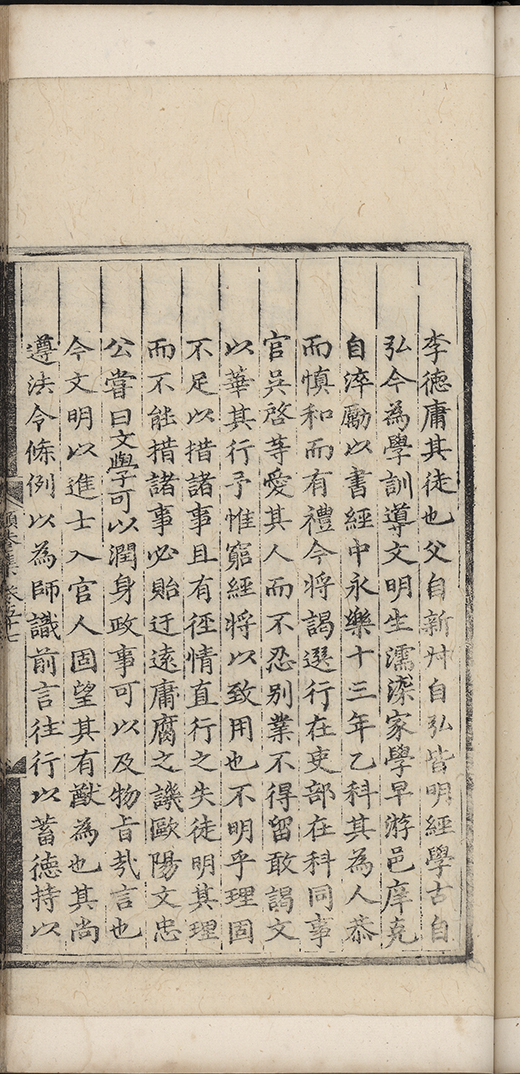 李德庸其徒也父自新艸自弘皆明經學古自
弘今為學訓導文明生濡染家學早游邑庠克
自淬勵以書經中永樂十三年乙科其為人恭
而慎和而有禮今將謁選行在吏部在科同事
官吳啓等愛其人而不忍别業不得留敢謁文
以華其行予惟窮經將以致用也不明乎理固
不足以措諸事且有徑情直行之失徒明其理
而不能措諸事必貽迂遠庸腐之譏歐陽文忠
公嘗曰文學可以潤身政事可以及物旨㢤言也
今文明以進士入官人固望其有猷為也其尚
遵法令條例以為師識前言往行以蓄德持以
頤菴集 卷五 十七